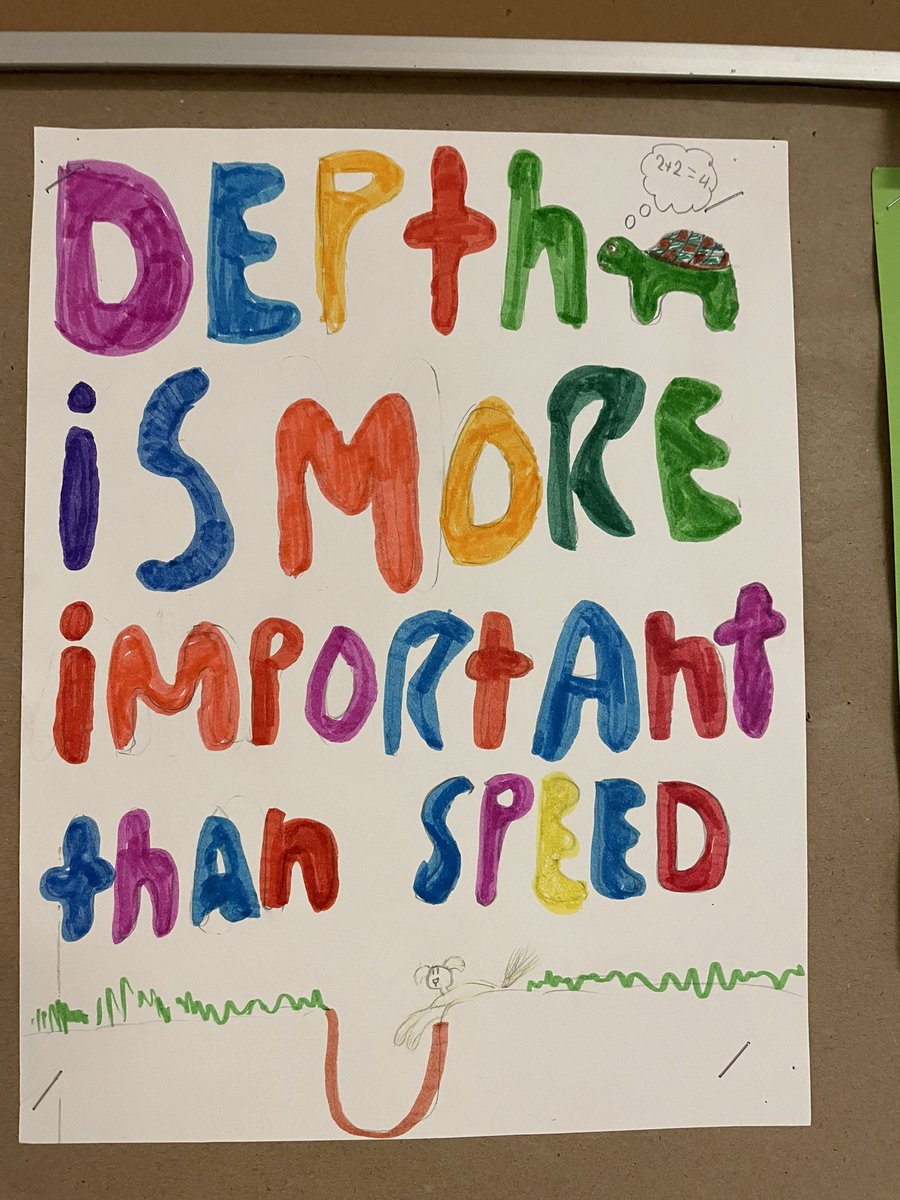 DEPth
2+2=4
iS MORE
iMPORtAnt
thAn SPEED